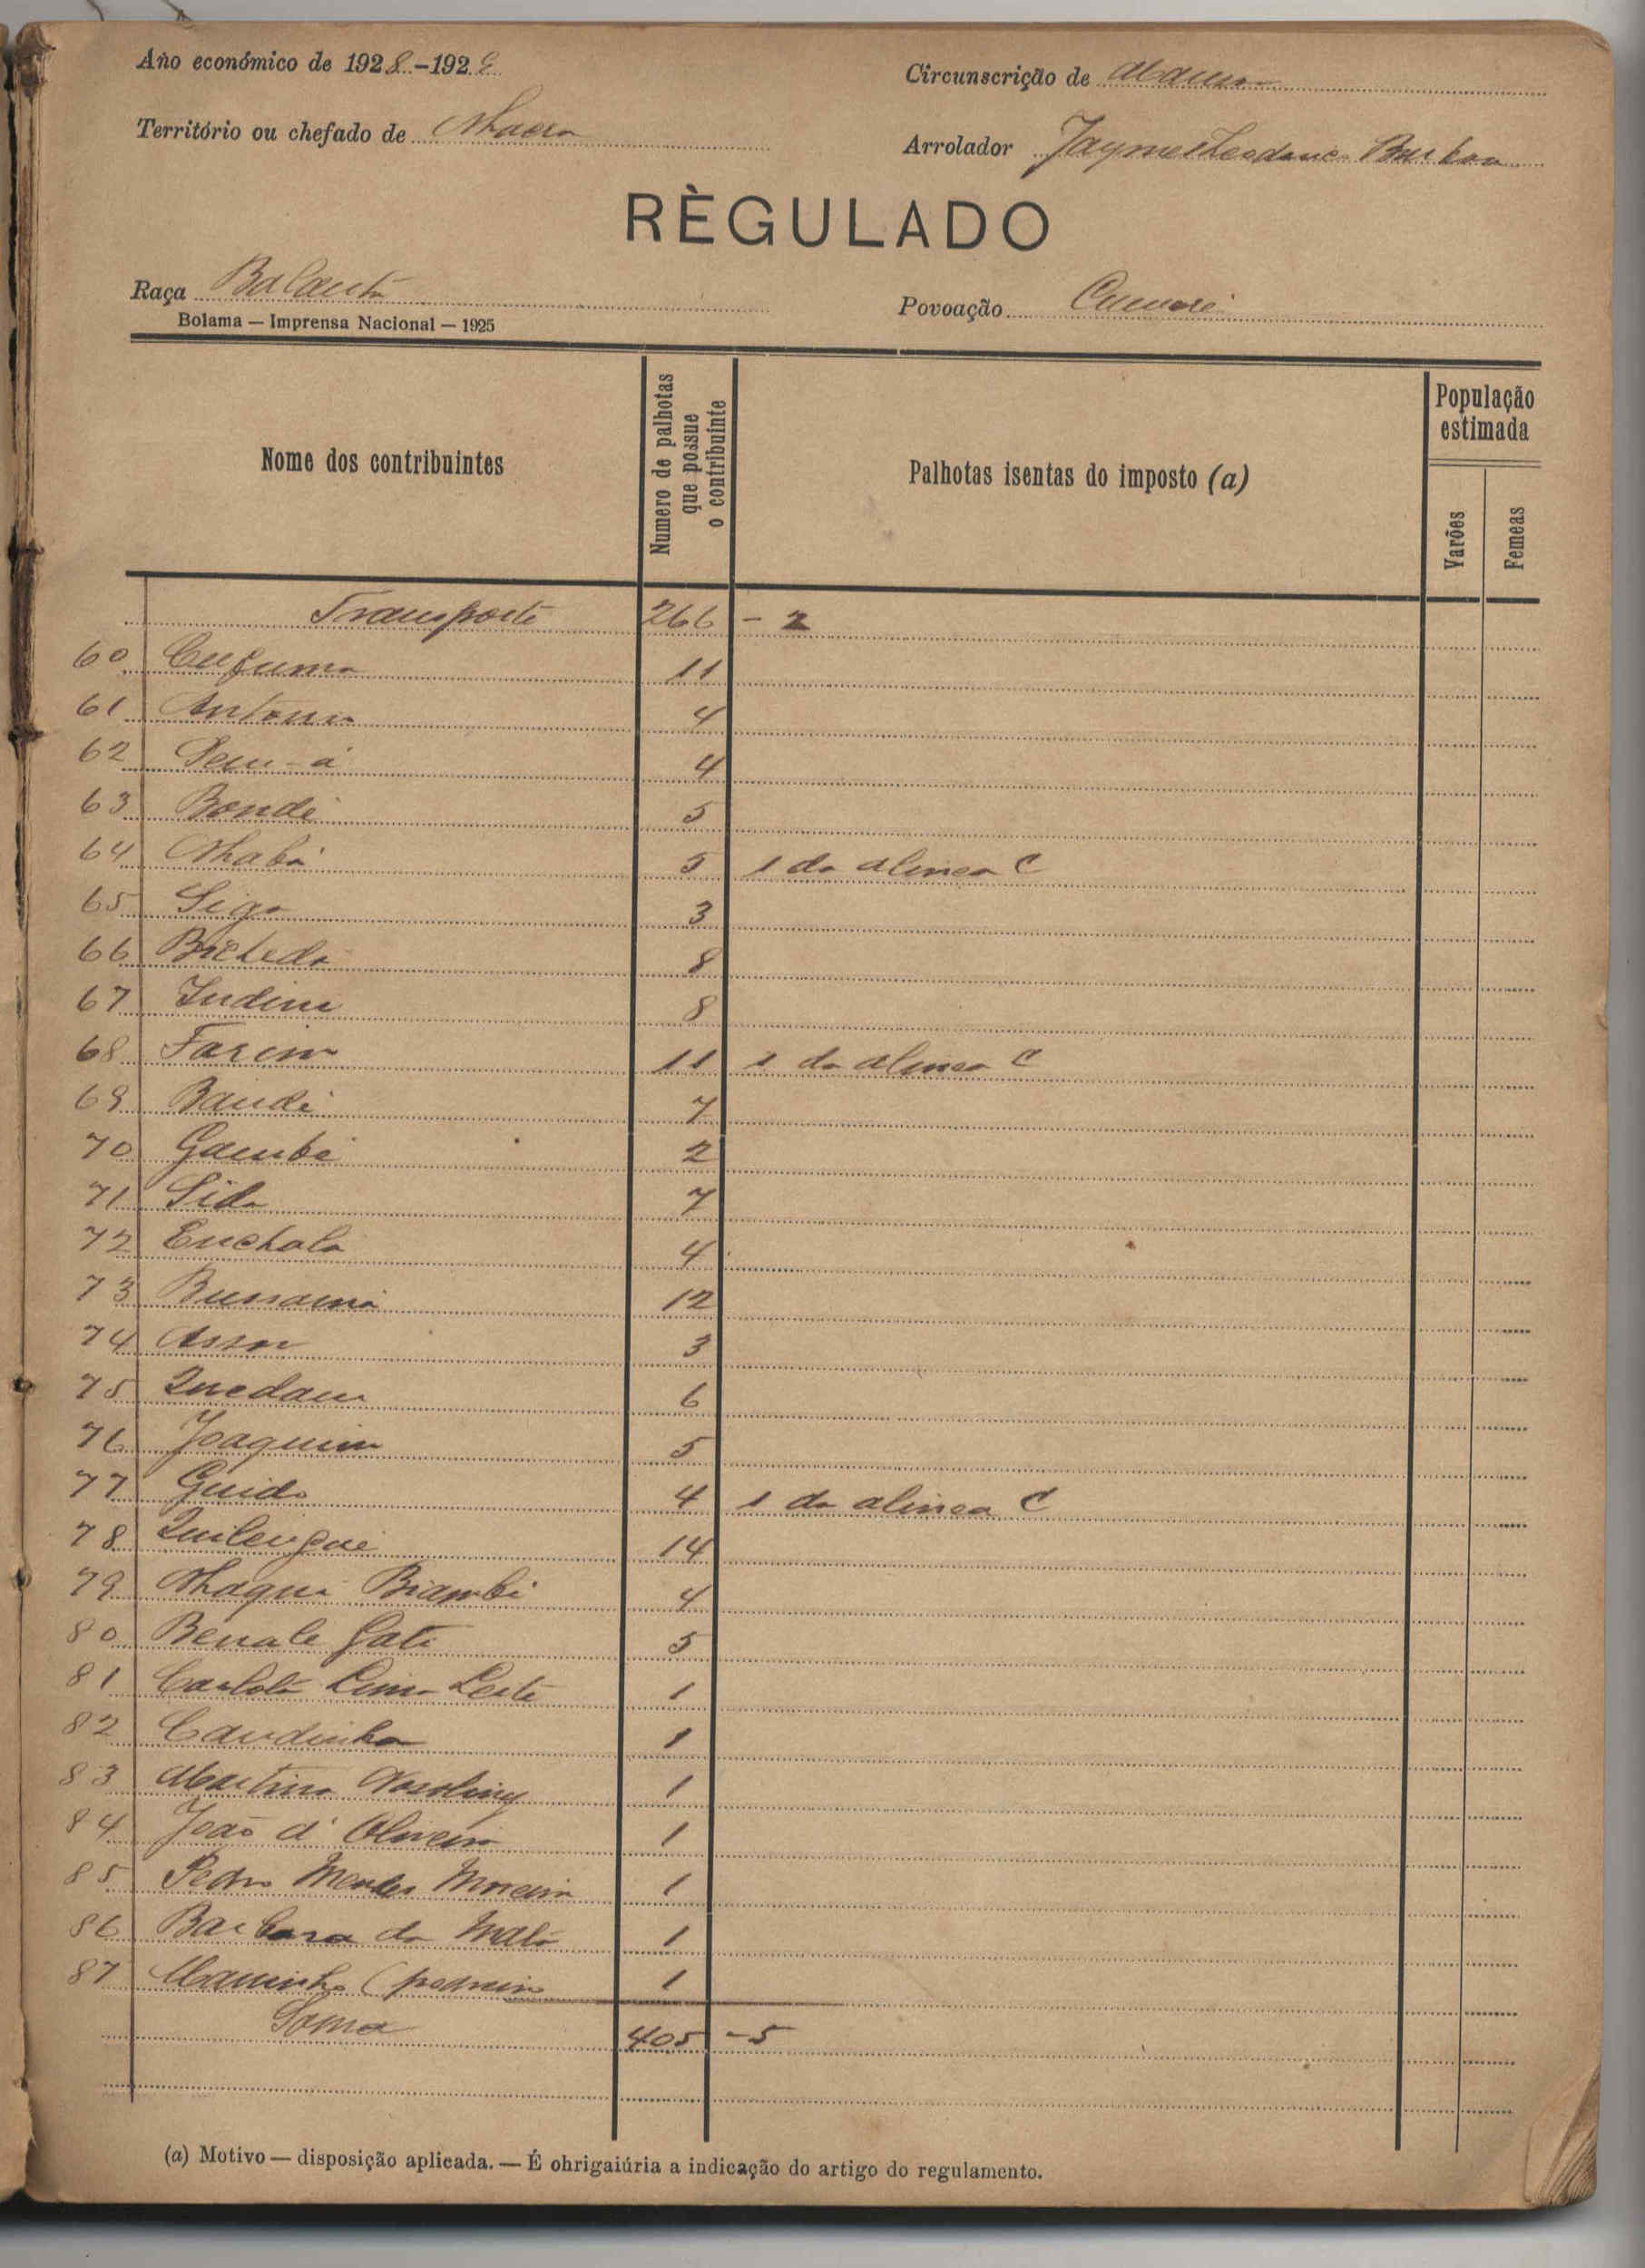 Año económico de 1928-1929
Circunscrição de Mansoa
Território ou chefado de Nhacra
Arrolador Jayme
RÈGULADO
Raça Balanta
Povoação Cumeré
Bolama — Imprensa Nacional — 1925
Nome dos contribuintes
Numero de palhotas que possue o contribuinte
Palhotas isentas do imposto (a)
População estimada
Varões
Femeas
Transporte 266 - 2
60 Cufuma 11
61 Antonio 4
62 4
63 Bondé 5
64 Nhabá 5 1 da alinea C
65 Siga 3
66 8
67 Indine 8
68 Farim 11 1 da alinea C
69 7
70 Gambé 2
71 Sida 7
72 Enchala 4
73 12
74 3
75 Quedam 6
76 Joaquim 5
77 Guido 4 1 da alinea C
78 14
79 Nhaque Biambi 4
80 5
81 Carlota Lima Leite 1
82 Candinha 1
83 1
84 João d' Oliveira 1
85 Pedro Mendes Moreira 1
86 Barbara da 1
87 (pedreiro 1
Soma 405 - 5
(a) Motivo — disposição aplicada. — É ohrigaiúria a indicação do artigo do regulamento.